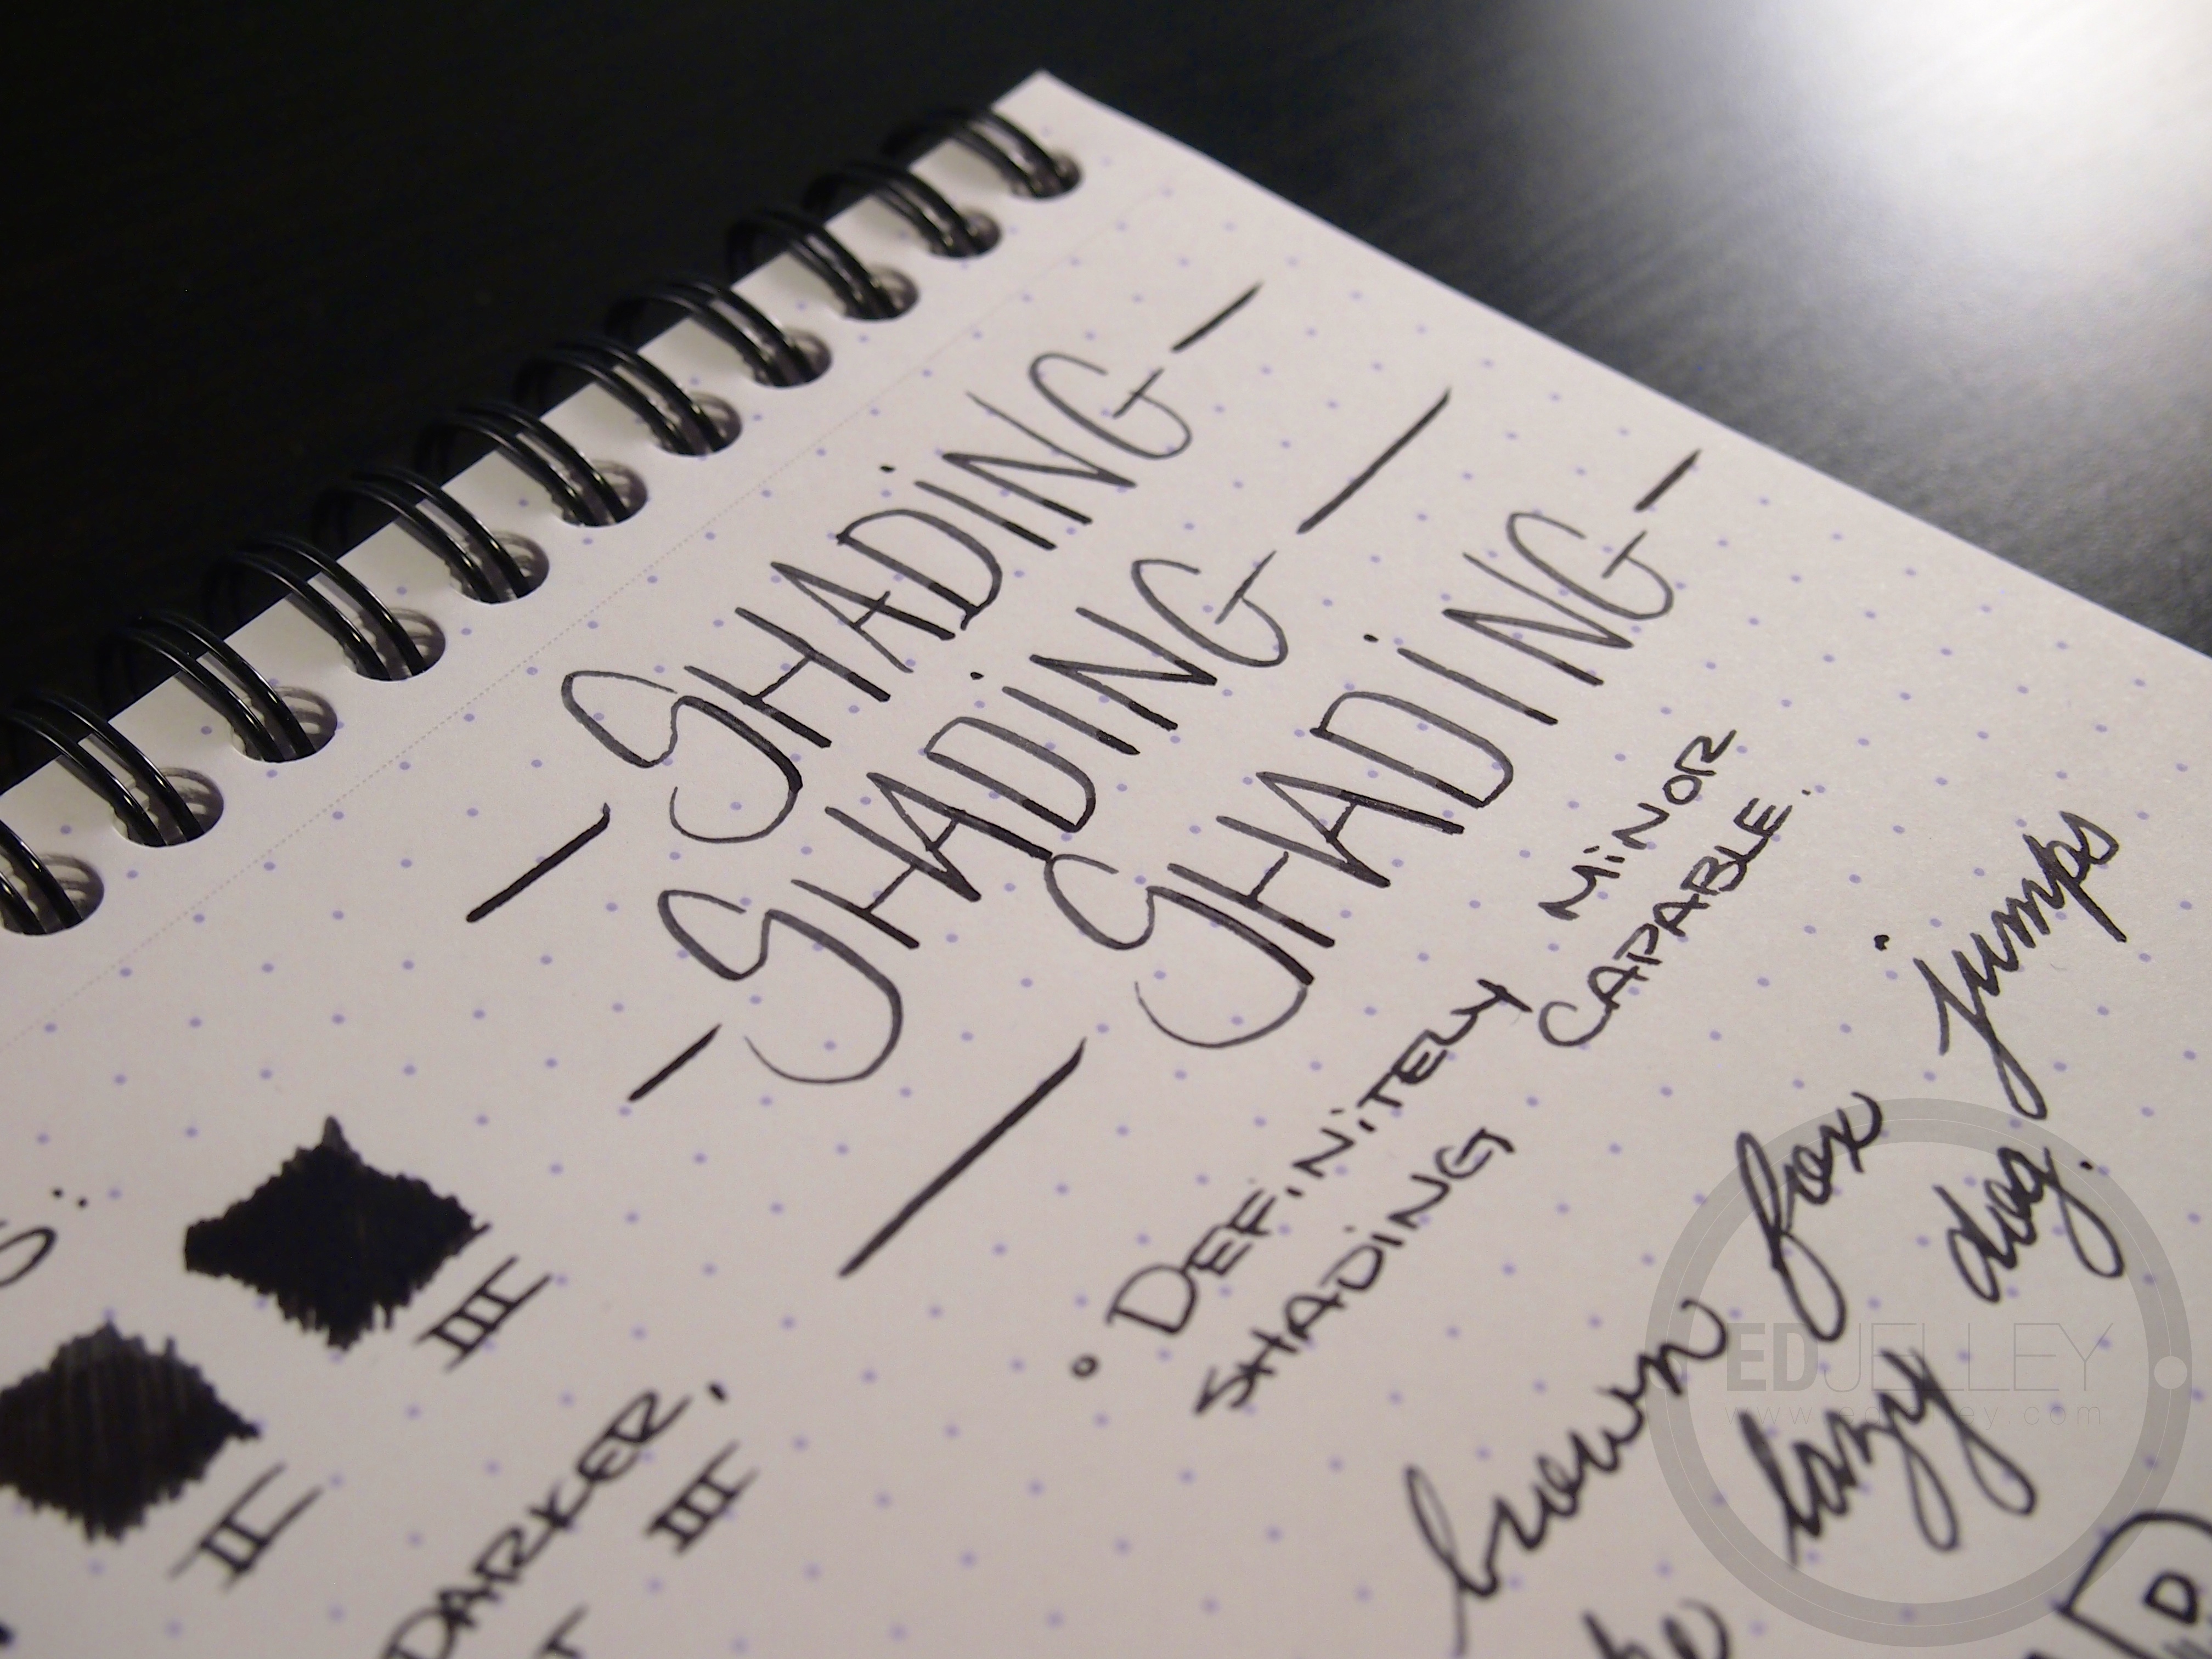 -SHADING-
-SHADING-
-SHADING-
• DEFINITELY MINOR
SHADING CAPABLE.
S:
III
II
DARKER,
III
brown fox jumps
lazy dog.
EDJELLEY
www.edjelley.com